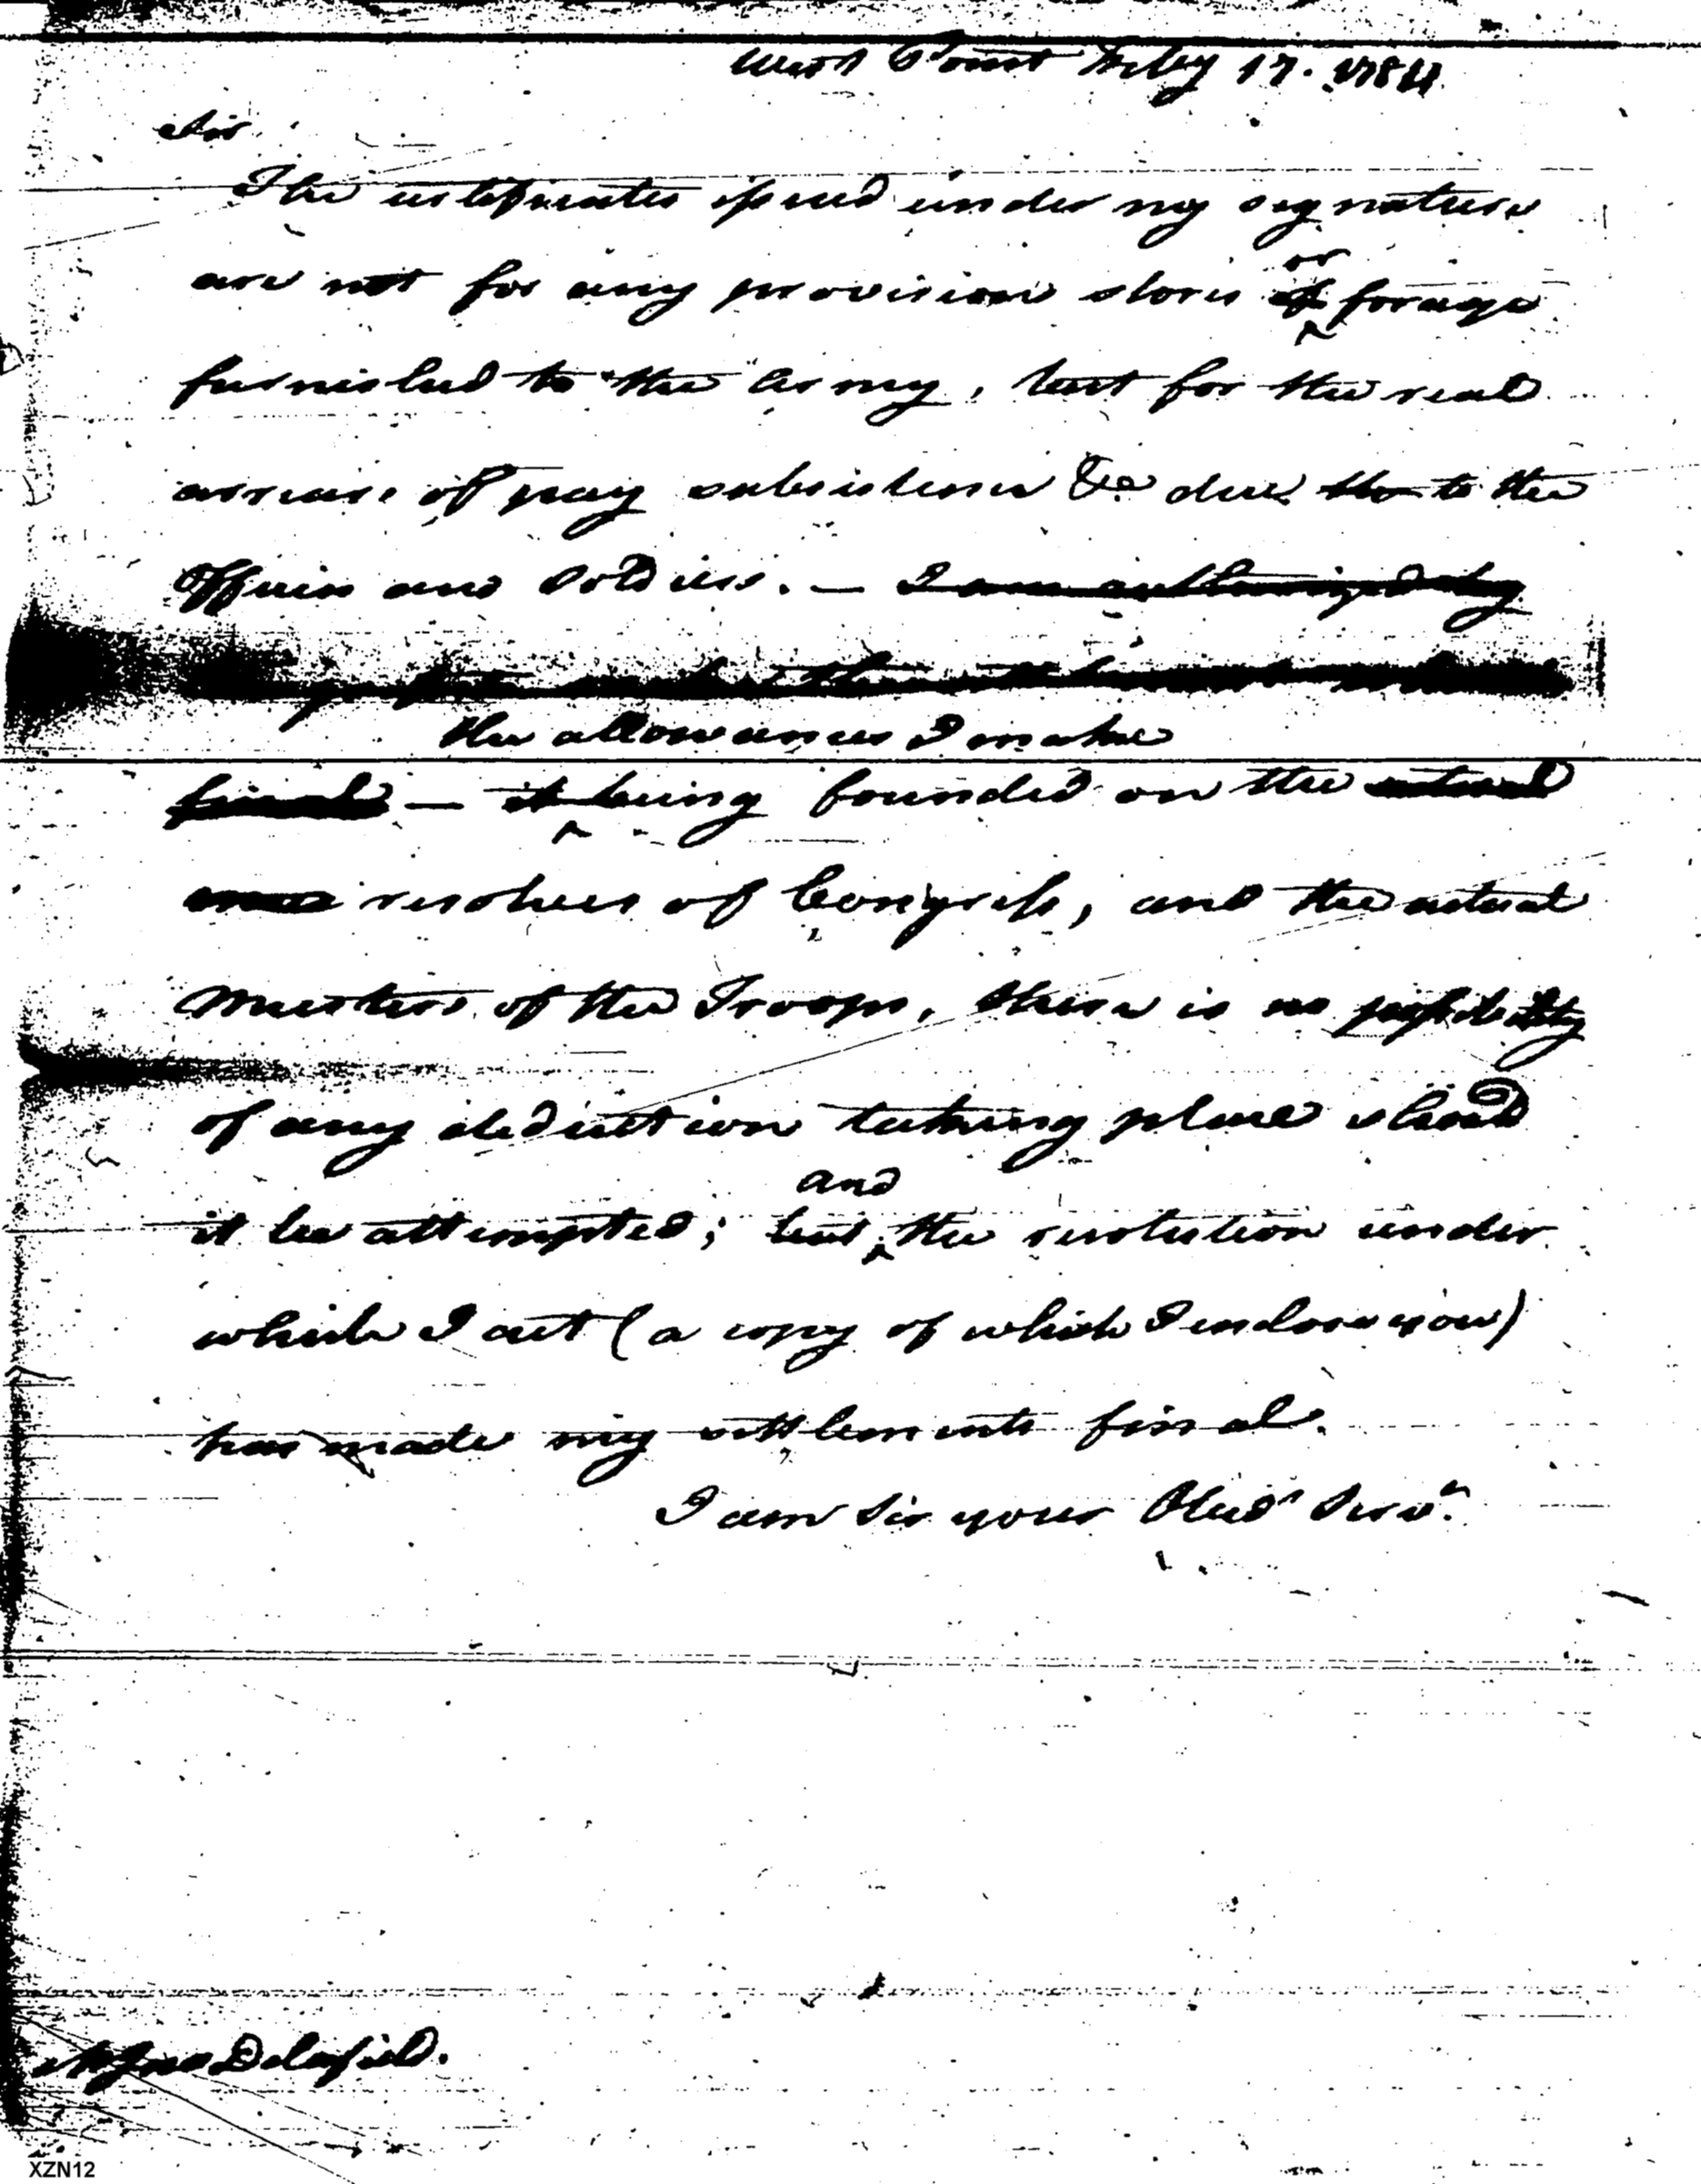 West Point Feby 17. 1784
Sir
The certificates issued under my signature
or
are not for any provision stores of forage
furnished to the Army, but for the real
arrears of pay subsistence &c due the to the
Officers and Soldiers. — I am authorized by
the allowances I make
final — it being founded on the actual
resolves of Congress, and the actual
Musters of the Troops, there is no possibility
of any deduction taking place should
and
it be attempted; but the resolution under
which I act (a copy of which I enclose you)
has made my settlements final.
I am Sir your Obedt Servt
Mr Jno Delafield.
XZN12